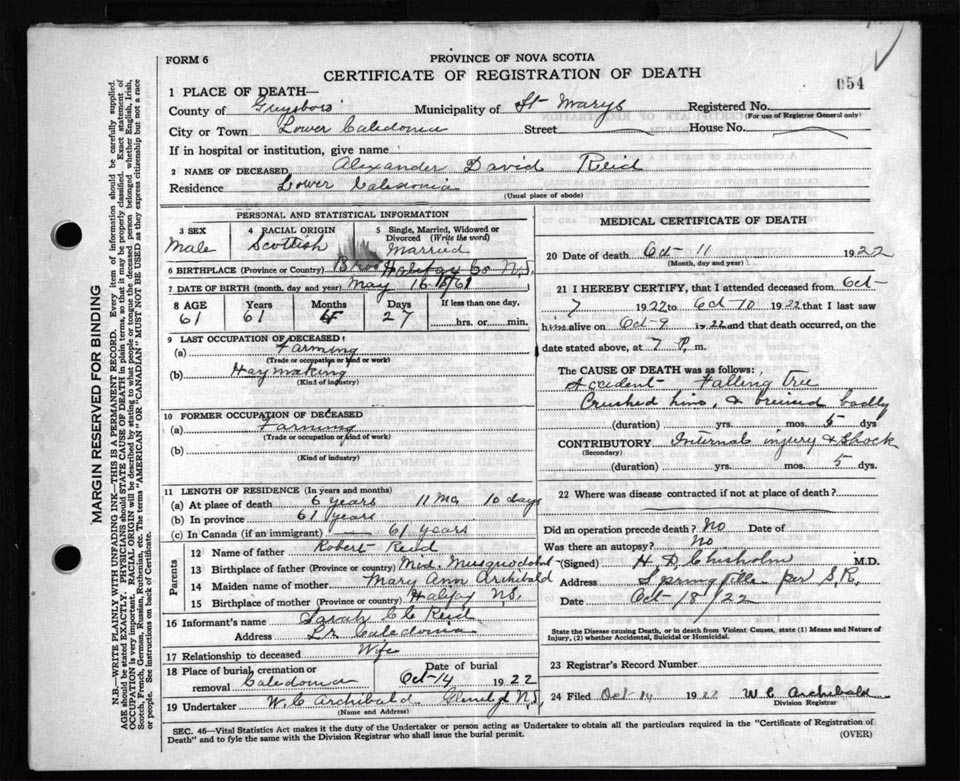 FORM 6
PROVINCE OF NOVA SCOTIA
CERTIFICATE OF REGISTRATION OF DEATH
054
1 PLACE OF DEATH—
County of Guysboro Municipality of St Marys Registered No.
(For use of Registrar General only)
City or Town Lower Caledonia Street House No.
If in hospital or institution, give name
2 NAME OF DECEASED Alexander David Reid
Residence Lower Caledonia
(Usual place of abode)
PERSONAL AND STATISTICAL INFORMATION
3 SEX Male
4 RACIAL ORIGIN Scottish
5 Single, Married, Widowed or Divorced (Write the word) Married
6 BIRTHPLACE (Province or Country) Halifax Co N.S.
7 DATE OF BIRTH (Month, day and year) May 16
8 AGE Years Months Days If less than one day,
61 61 27 hrs. or min.
9 LAST OCCUPATION OF DECEASED:
(a) Farming
(Trade or occupation or kind or work)
(b) Haymaking
(Kind of industry)
10 FORMER OCCUPATION OF DECEASED
(a) Farming
(Trade or occupation or kind or work)
(b)
(Kind of industry)
11 LENGTH OF RESIDENCE (In years and months)
(a) At place of death 6 years 11 Mo, 10 days
(b) In province 61 years
(c) In Canada (if an immigrant) 61 years
Parents
12 Name of father Robert Reid
13 Birthplace of father (Province or country) Mid. Musquodoboit
14 Maiden name of mother Mary Ann Archibald
15 Birthplace of mother (Province or country) Halifax N.S.
16 Informant's name Sarah C C Reid
Address Lr Caledonia
17 Relationship to deceased Wife
18 Place of burial, cremation or removal Caledonia
Date of burial Oct-14 1922
19 Undertaker W. C Archibald N.S.
(Name and Address)
MEDICAL CERTIFICATE OF DEATH
20 Date of death Oct- 11 1922
(Month, day and year)
21 I HEREBY CERTIFY, that I attended deceased from Oct-
7 1922 to Oct 10 1922 that I last saw
him alive on Oct-9 1922 and that death occurred, on
date stated above, at 7 P. m.
The CAUSE OF DEATH was as follows:
Accident- Falling Tree
Crushed him, & bruised badly
(duration) yrs. mos. 5 dys
CONTRIBUTORY Internal injury & Shock
(Secondary)
(duration) yrs. mos. 5 dys.
22 Where was disease contracted if not at place of death?
Did an operation precede death? No Date of
Was there an autopsy? No
(Signed) H. D. Chisholm M.D.
Address Springville per S.R.
Date Oct 18/22
State the Disease causing Death, or in death from Violent Causes, state (1) Means and Nature of Injury, (2) whether Accidental, Suicidal or Homicidal.
23 Registrar's Record Number
24 Filed Oct-14 1922 W C Archibald
Division Registrar
SEC. 46—Vital Statistics Act makes it the duty of the Undertaker or person acting as Undertaker to obtain all the particulars required in the "Certificate of Registration of
Death" and to fyle the same with the Division Registrar who shall issue the burial permit.
(OVER)
MARGIN RESERVED FOR BINDING
N.B.—WRITE PLAINLY WITH UNFADING INK—THIS IS A PERMANENT RECORD. Every item of information should be carefully supplied.
AGE should be stated EXACTLY. PHYSICIANS should STATE CAUSE OF DEATH in plain terms, so that it may be properly classified. Exact statement of
OCCUPATION is very important. RACIAL ORIGIN will be described by stating to what people or tongue the deceased person belonged whether English, Irish,
Scotch, French, German, Russian, Ruthenian, etc. The terms "AMERICAN" or "CANADIAN" MUST NOT BE USED as they express citizenship but not a race
or people. See instructions on back of Certificate.